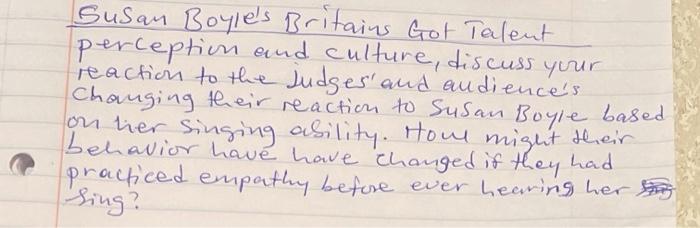 Susan Boyle's Britains Got Talent
perception and culture, discuss your
reaction to the Judges' and audience's
Changing their reaction to Susan Boyle based
on her singing ability. How might their
behavior have have changed if they had
practiced empathy before ever hearing her
sing?